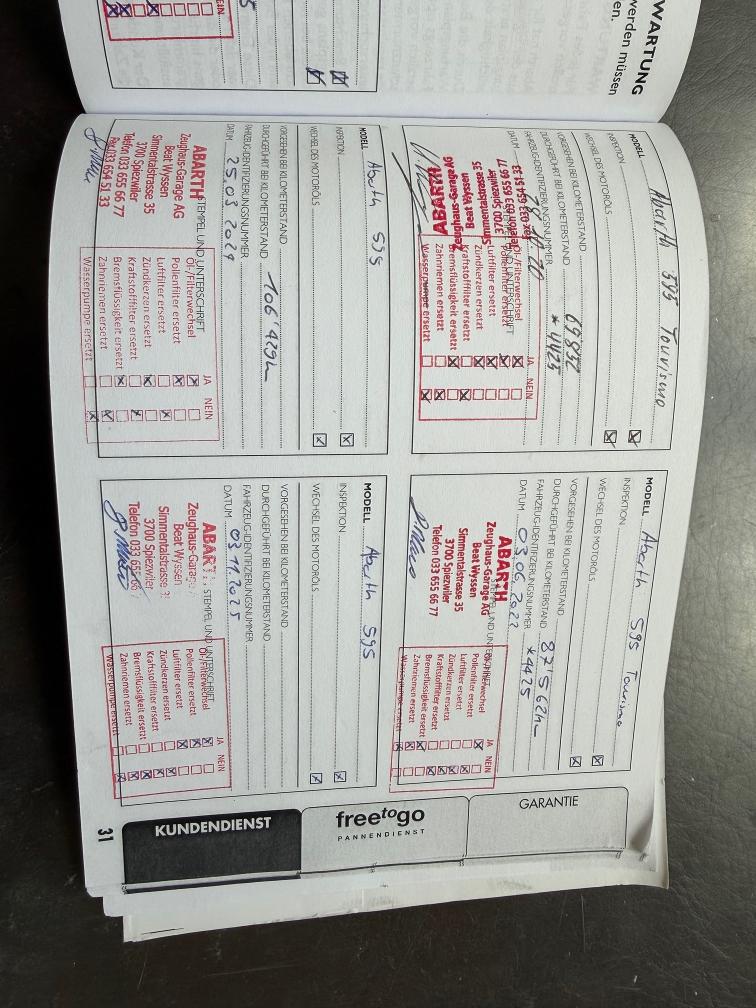 WARTUNG
werden müssen
en.
MODELL Abarth 595 Tourismo
INSPEKTION
WECHSEL DES MOTORÖLS
VORGESEHEN BEI KILOMETERSTAND
DURCHGEFÜHRT BEI KILOMETERSTAND 69832
FAHRZEUG-IDENTIFIZIERUNGSNUMMER *4425
DATUM
ABARTH
Zeughaus-Garage AG
Beat Wyssen
Simmentalstrasse 35
3700 Spiezwiler
Telefon 033 655 66 77
Fax 033 654 51 33
JA NEIN
Öl-/Filterwechsel
Pollenfilter ersetzt
Luftfilter ersetzt
Zündkerzen ersetzt
Kraftstofffilter ersetzt
Bremsflüssigkeit ersetzt
Zahnriemen ersetzt
Wasserpumpe ersetzt
MODELL Abarth 595 Tourismo
INSPEKTION
WECHSEL DES MOTORÖLS
VORGESEHEN BEI KILOMETERSTAND
DURCHGEFÜHRT BEI KILOMETERSTAND 87'562km
FAHRZEUG-IDENTIFIZIERUNGSNUMMER *4425
DATUM 03.06.2022
ABARTH
Zeughaus-Garage AG
Beat Wyssen
Simmentalstrasse 35
3700 Spiezwiler
Telefon 033 655 66 77
Öl-/Filterwechsel
Pollenfilter ersetzt
Luftfilter ersetzt
Zündkerzen ersetzt
Kraftstofffilter ersetzt
Bremsflüssigkeit ersetzt
Zahnriemen ersetzt
Wasserpumpe ersetzt
MODELL Abarth 595
INSPEKTION
WECHSEL DES MOTORÖLS
VORGESEHEN BEI KILOMETERSTAND
DURCHGEFÜHRT BEI KILOMETERSTAND 106'429km
FAHRZEUG-IDENTIFIZIERUNGSNUMMER
DATUM 25.03.2024
STEMPEL UND UNTERSCHRIFT
ABARTH
Zeughaus-Garage AG
Beat Wyssen
Simmentalstrasse 35
3700 Spiezwiler
Telefon 033 655 66 77
Fax 033 654 51 33
JA NEIN
Öl-/Filterwechsel
Pollenfilter ersetzt
Luftfilter ersetzt
Zündkerzen ersetzt
Kraftstofffilter ersetzt
Bremsflüssigkeit ersetzt
Zahnriemen ersetzt
Wasserpumpe ersetzt
MODELL Abarth 595
INSPEKTION
WECHSEL DES MOTORÖLS
VORGESEHEN BEI KILOMETERSTAND
DURCHGEFÜHRT BEI KILOMETERSTAND
FAHRZEUG-IDENTIFIZIERUNGSNUMMER
DATUM 03.11.2025
STEMPEL UND UNTERSCHRIFT
Beat Wyssen
3700 Spiezwiler
JA NEIN
Öl-/Filterwechsel
Pollenfilter ersetzt
Luftfilter ersetzt
Zündkerzen ersetzt
Kraftstofffilter ersetzt
Bremsflüssigkeit ersetzt
Zahnriemen ersetzt
Wasserpumpe ersetzt
GARANTIE
freetogo
PANNENDIENST
KUNDENDIENST
31